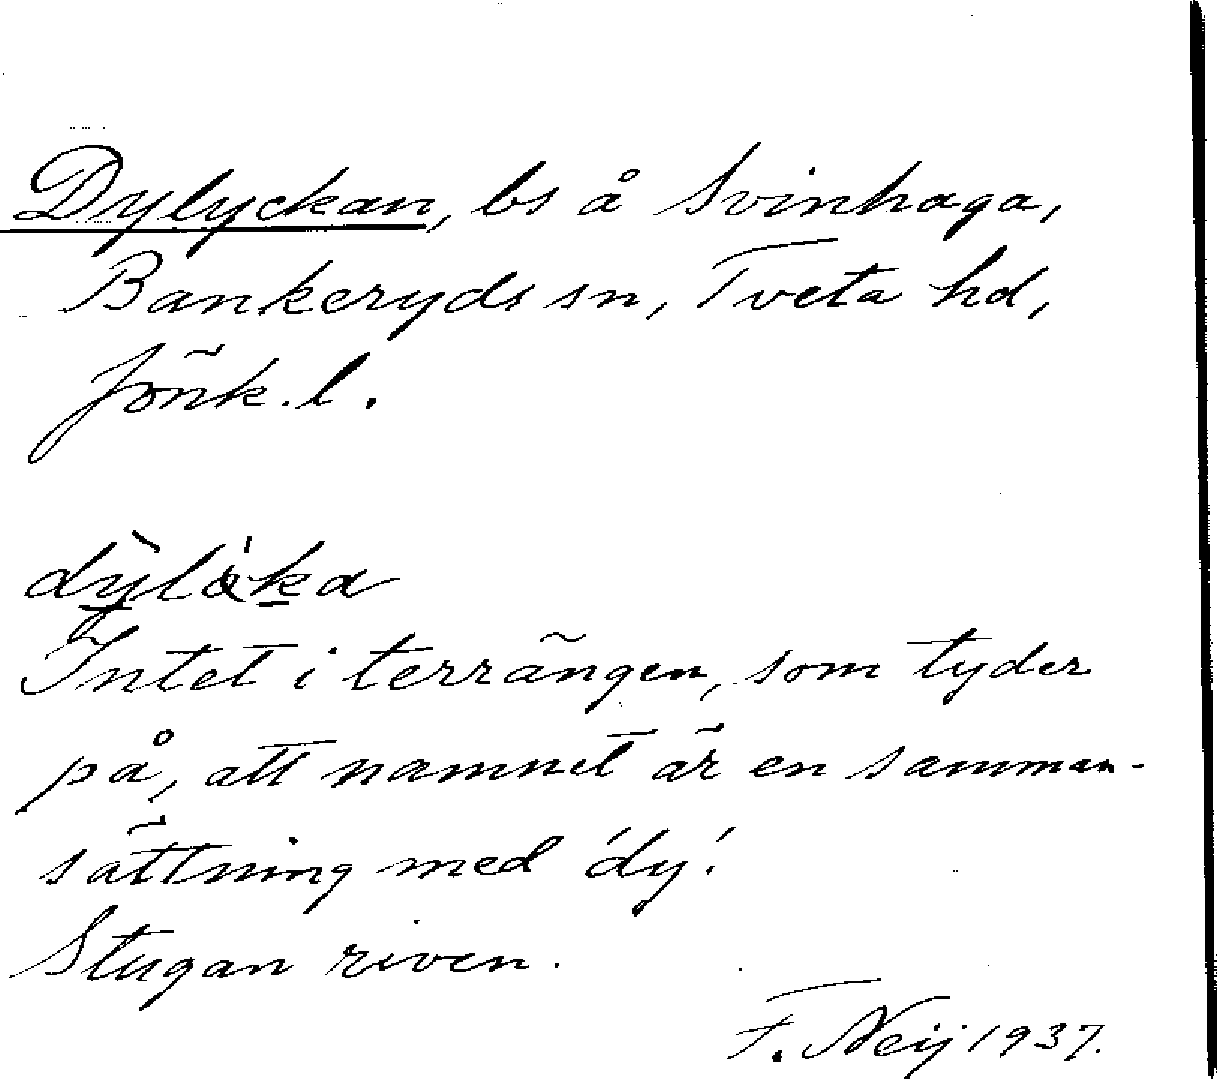 Dylyckan, bs å Svinhaga,
Bankeryds sn, Tveta hd,
Jönk. l.
Intet i terrängen, som tyder
på, att namnet är en samman-
sättning med 'dy'.
Stugan riven.
F. Neij 1937.